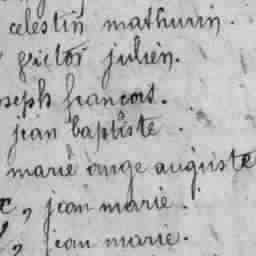 celestin mathurin.
victor julien.
joseph françois.
jean baptiste.
marie ange auguste
, jean marie.
, jean marie.